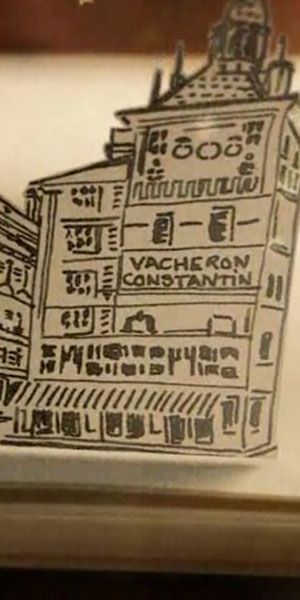 VACHERON
CONSTANTIN